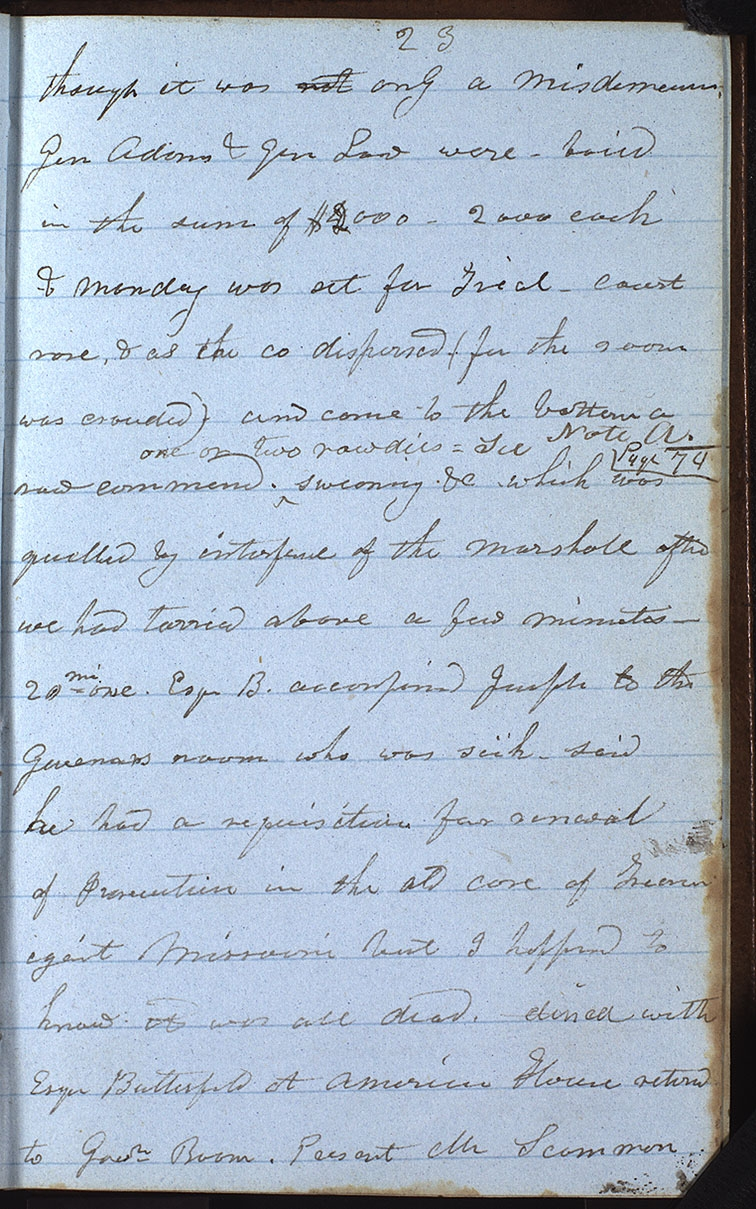 23
though it was not only a misdemeanor.
Gen Adams & Gen Law were – baild
in the sum of $2000 – 2000 each
& monday was set for Trial – court
rose, & as the co dispersed (for the room
was crowded) and come to the bottom a
one or two rowdies = See Note A.
Page 74
row commend. ^ sweoring &c. which was
quelled by interfence of the marshall after
we had tarried above a few minutes –
20 mi– one. Esqr B. accompined Joseph to the
Govenors room who was sick – said
he had a requisition for renewal
of Prosecution in the old case of Treason
agist Missouri but I happend to
know it was all dead. – dined with
Esqr Butterfield at American House returd
to Govrs Room. Present Mr Scammon